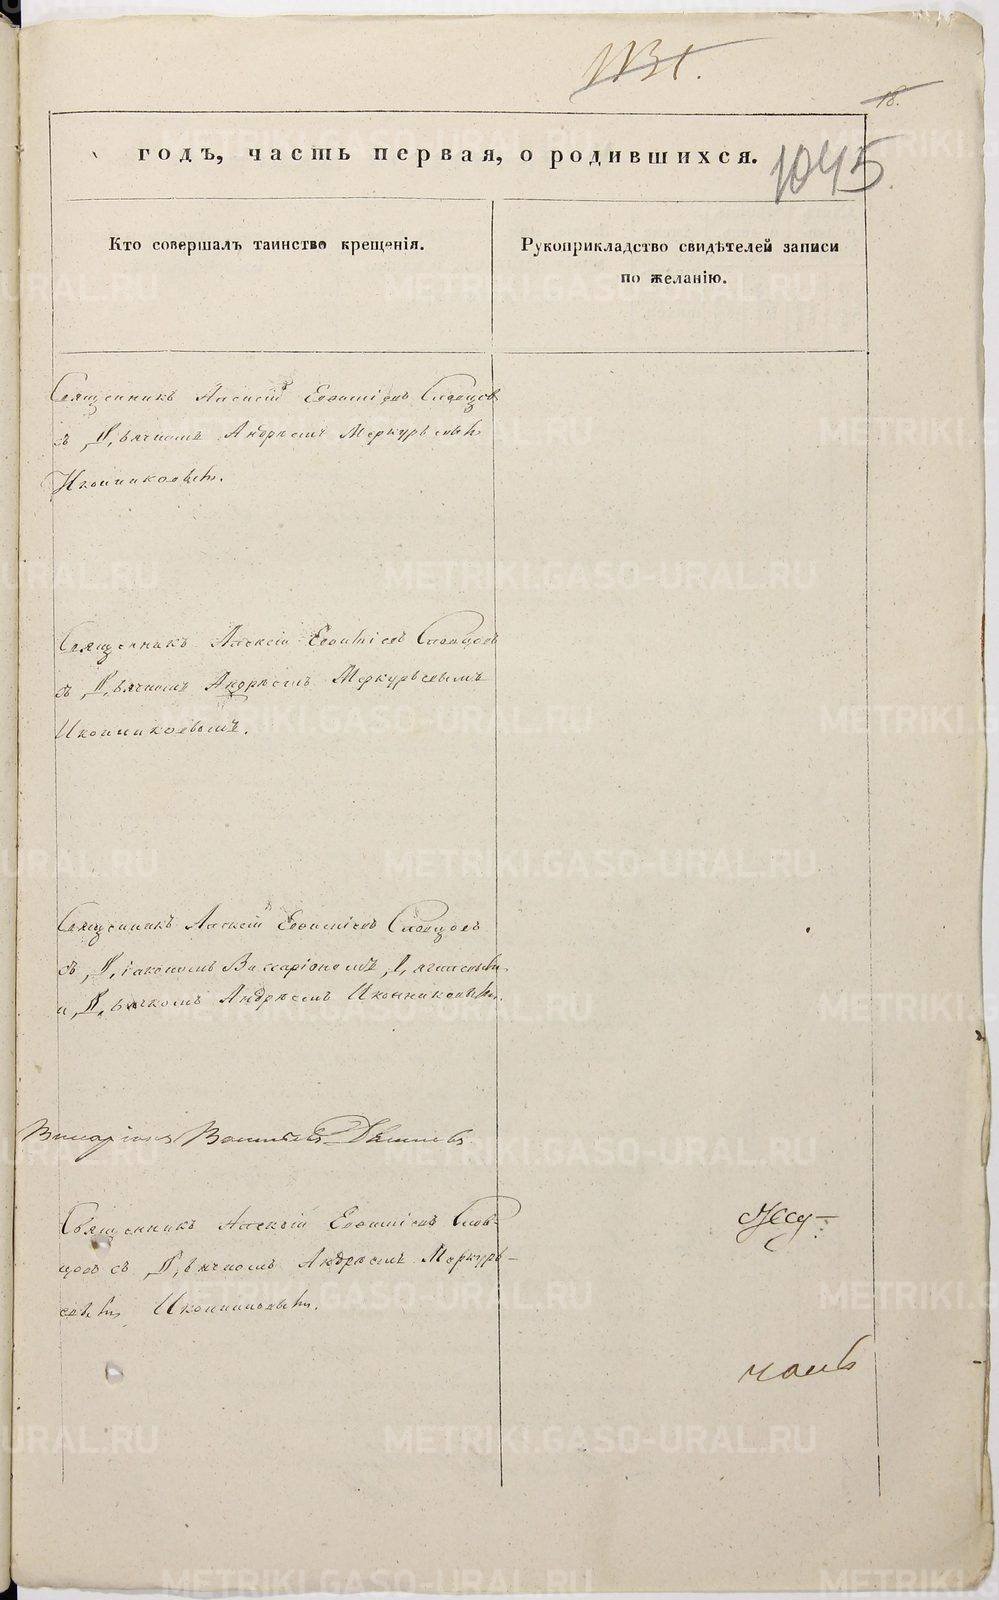 1131.
18.
годъ, часть первая, о родившихся.
1045.
Кто совершалъ таинство крещенія.
Рукоприкладство свидѣтелей записи
по желанію.
Священникъ Алексій Евѳиміевъ Словцовъ
съ Дьячкомъ Андреемъ Меркурьевымъ
Иконниковымъ.
Священникъ Алексій Евѳиміевъ Словцовъ
съ Дьячкомъ Андреемъ Меркурьевымъ
Иконниковымъ.
Священникъ Алексій Евѳиміевъ Словцовъ
съ Діакономъ
и Дьячкомъ Андреемъ Иконниковымъ.
Священникъ Алексій Евѳиміевъ Слов-
цовъ съ Дьячкомъ Андреемъ Меркурь-
евымъ Иконниковымъ.
METRIKI.GASO-URAL.RU